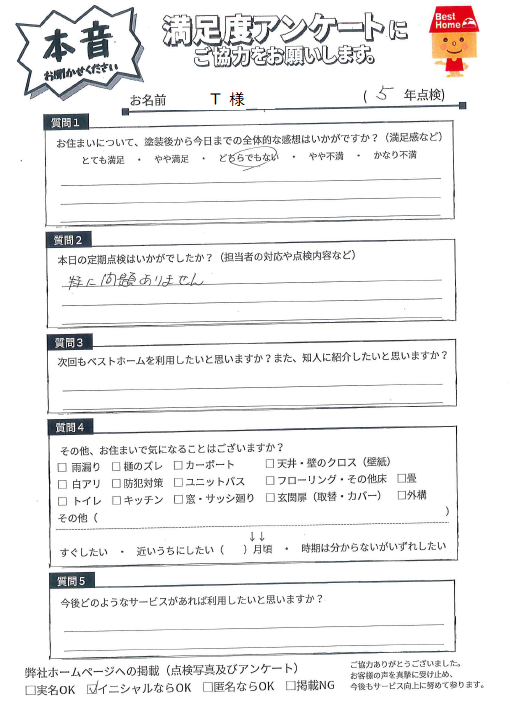 本音
お聞かせください
満足度アンケートに
ご協力をお願いします。
Best Home
お名前 T 様 ( 5 年点検)
質問1
お住まいについて、塗装後から今日までの全体的な感想はいかがですか？（満足感など）
とても満足 ・ やや満足 ・ どちらでもない ・ やや不満 ・ かなり不満
質問2
本日の定期点検はいかがでしたか？（担当者の対応や点検内容など）
特に問題ありません
質問3
次回もベストホームを利用したいと思いますか？また、知人に紹介したいと思いますか？
質問4
その他、お住まいで気になることはございますか？
□ 雨漏り □ 樋のズレ □ カーポート □ 天井・壁のクロス（壁紙）
□ 白アリ □ 防犯対策 □ ユニットバス □ フローリング・その他床 □畳
□ トイレ □ キッチン □ 窓・サッシ廻り □ 玄関扉（取替・カバー） □外構
その他（ ）
↓↓
すぐしたい ・ 近いうちにしたい（ ）月頃 ・ 時期は分からないがいずれしたい
質問5
今後どのようなサービスがあれば利用したいと思いますか？
弊社ホームページへの掲載（点検写真及びアンケート）
□実名OK ☑イニシャルならOK □匿名ならOK □掲載NG
ご協力ありがとうございました。
お客様の声を真摯に受け止め、
今後もサービス向上に努めて参ります。